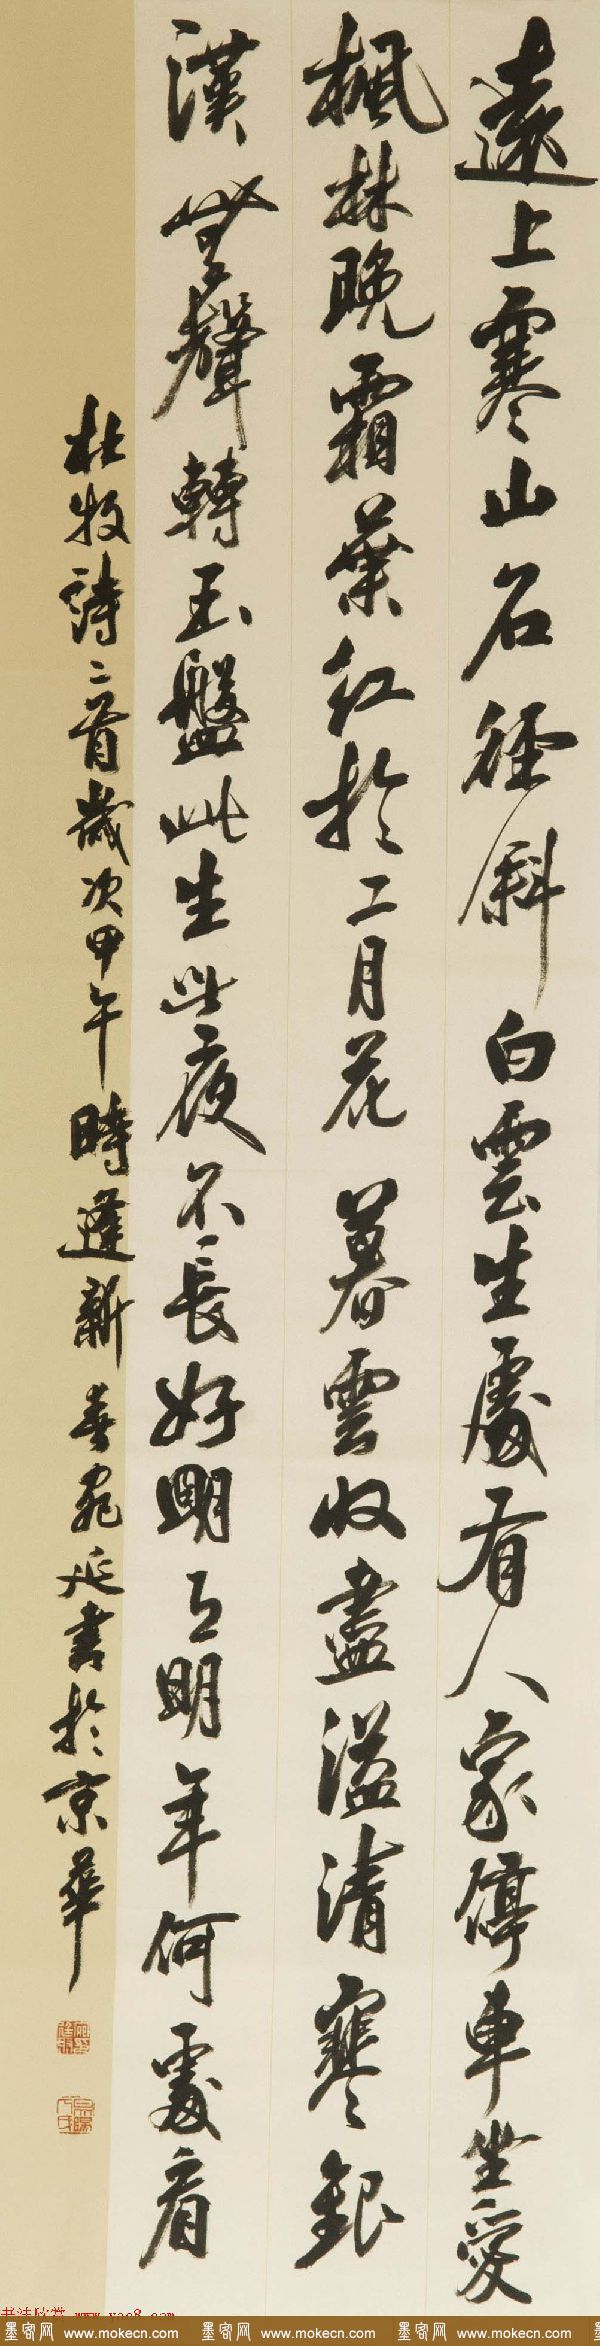 遠上寒山石徑斜白雲生處有人家停車坐愛
楓林晚霜葉紅於二月花暮雲收盡溢清寒銀
漢無聲轉玉盤此生此夜不長好明月明年何處看
杜牧詩二首歲次甲午時逢新春宛延書於京華
书法欣赏 www.yac8.com
墨客网 www.mokecn.com 墨客网 www.mokecn.com 墨客网 www.mokecn.com